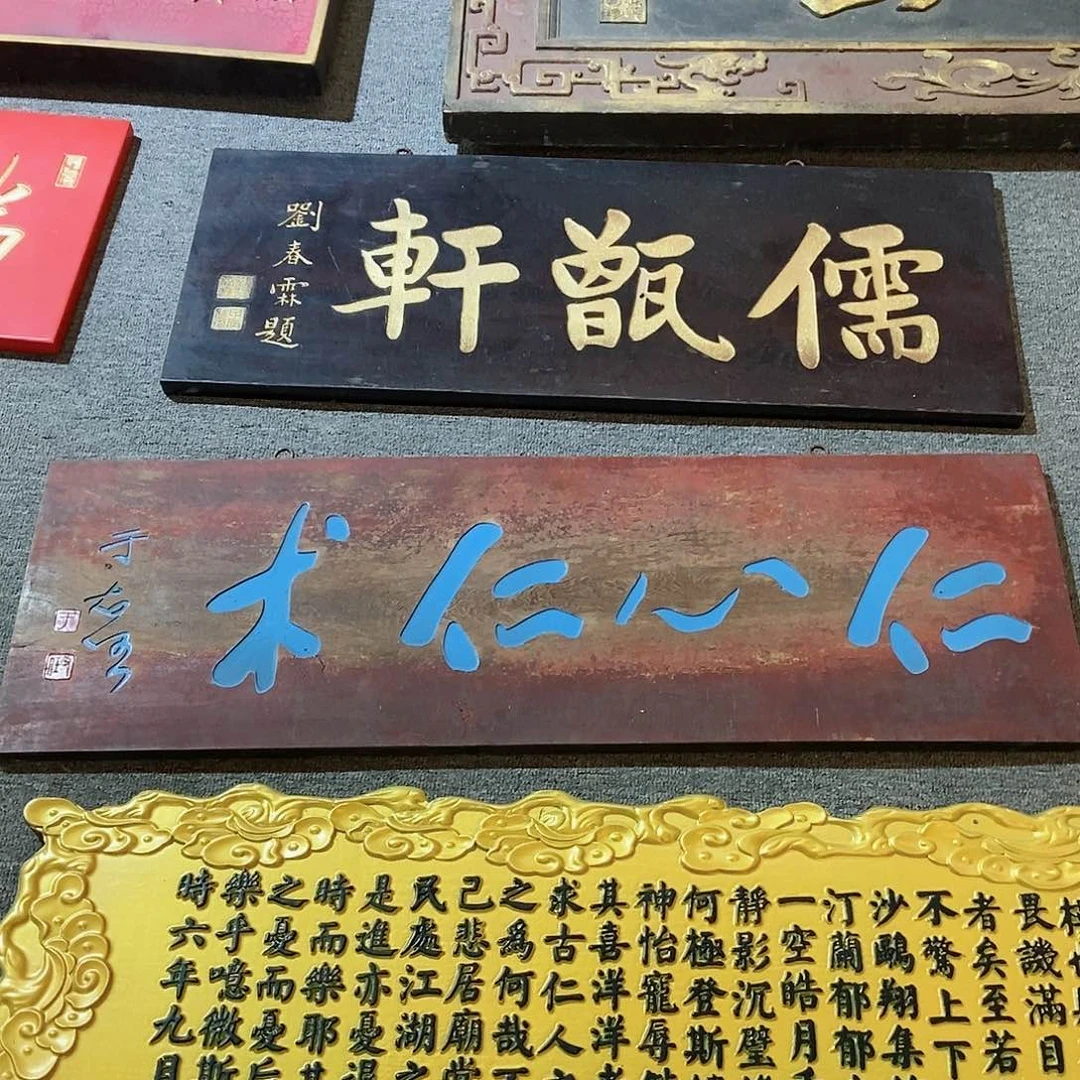 儒甑軒
劉春霖題
仁心仁术
于右任
畏譏滿目
者矣至若
不驚上下
沙鷗翔集
汀蘭郁郁
一空皓月千
靜影沉璧
何極登斯樓
神怡寵辱
其喜洋洋者
求古仁人之
之爲何哉不
己悲居廟堂
民處江湖之
是進亦憂退
時而樂耶其
之憂而憂后
樂乎噫微斯
時六年九月